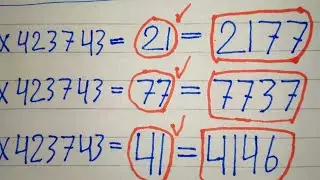 x423743 = 21 = 2177
x423743 = 77 = 7737
x423743 = 41 = 4146